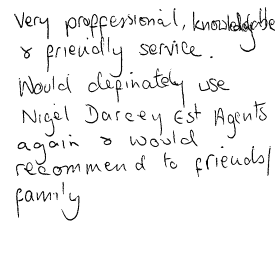 Very proffessional, knowledgable
& friendly service.
Would definately use
Nigel Darcey Est Agents
again & would
recommend to friends/
family